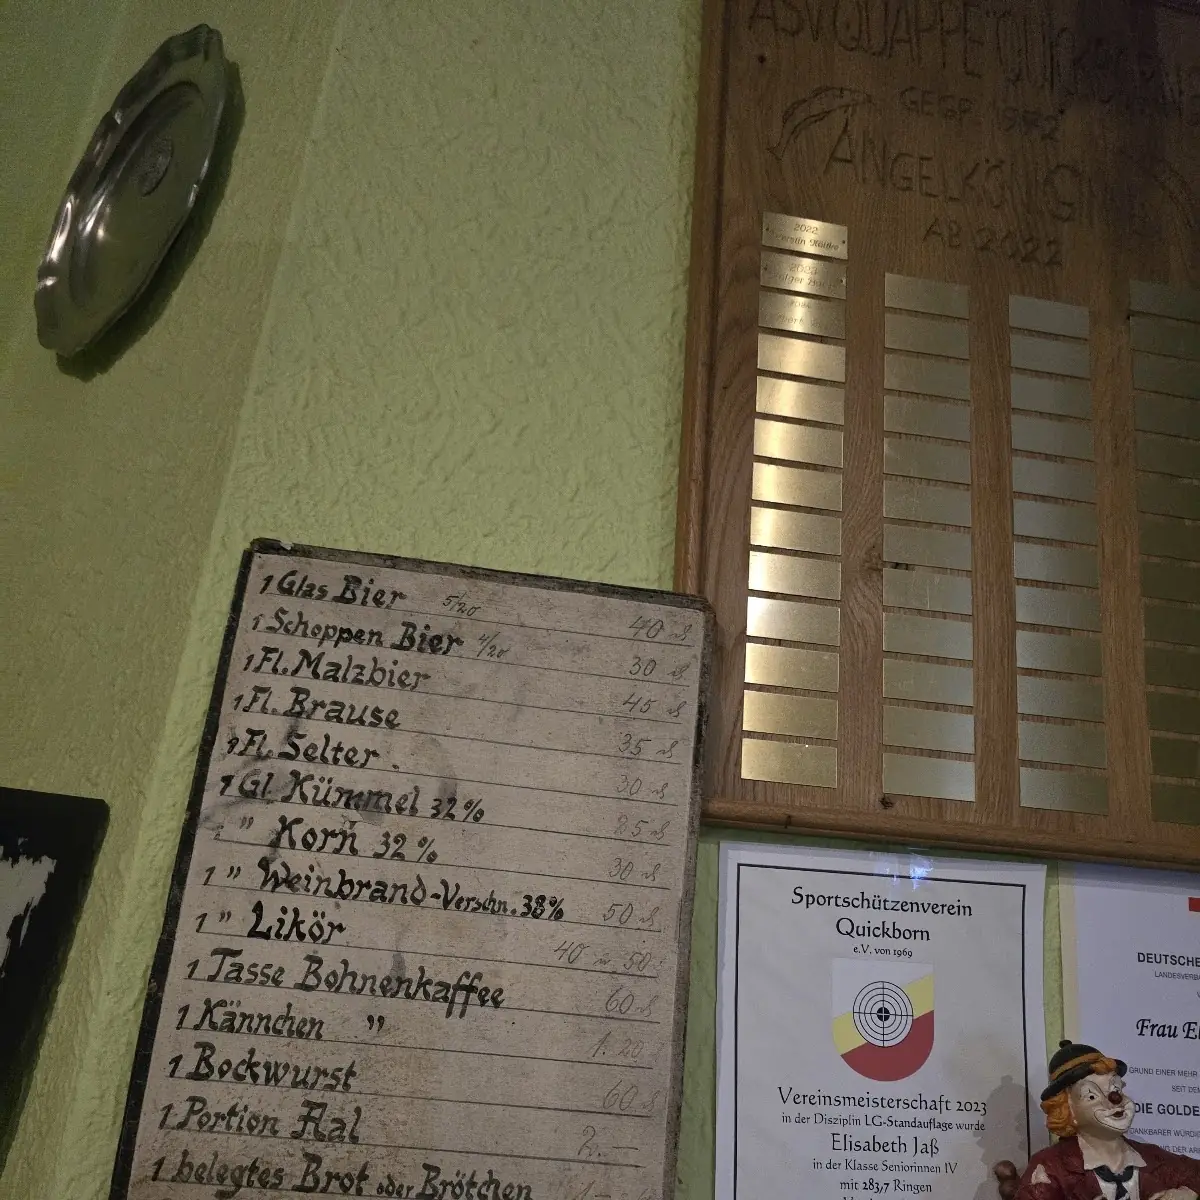 ASV QUAPPE
GEGR 1972
ANGELKÖNIG
AB 2022
2022
2023
1 Glas Bier 5/20 40 ₰
1 Schoppen Bier 4/20 30 ₰
1 Fl. Malzbier 45 ₰
1 Fl. Brause 35 ₰
1 Fl. Selter. 30 ₰
1 Gl. Kümmel 32% 25 ₰
" Korn 32% 30 ₰
1 " Weinbrand-Verschn. 38% 50 ₰
1 " Likör 40 u. 50
1 Tasse Bohnenkaffee 60 ₰
1 Kännchen " 1.20
1 Bockwurst 60 ₰
1 Portion Aal 2.
1 belegtes Brot oder Brötchen 1.-
Sportschützenverein
Quickborn
e.V. von 1969
Vereinsmeisterschaft 2023
in der Disziplin LG-Standauflage wurde
Elisabeth Jaß
in der Klasse Seniorinnen IV
mit 283,7 Ringen
DEUTSCHE
LANDESVERB
Frau El
GRUND EINER MEHR
SEIT DEM
DIE GOLDE
DANKBARER WÜRDIG